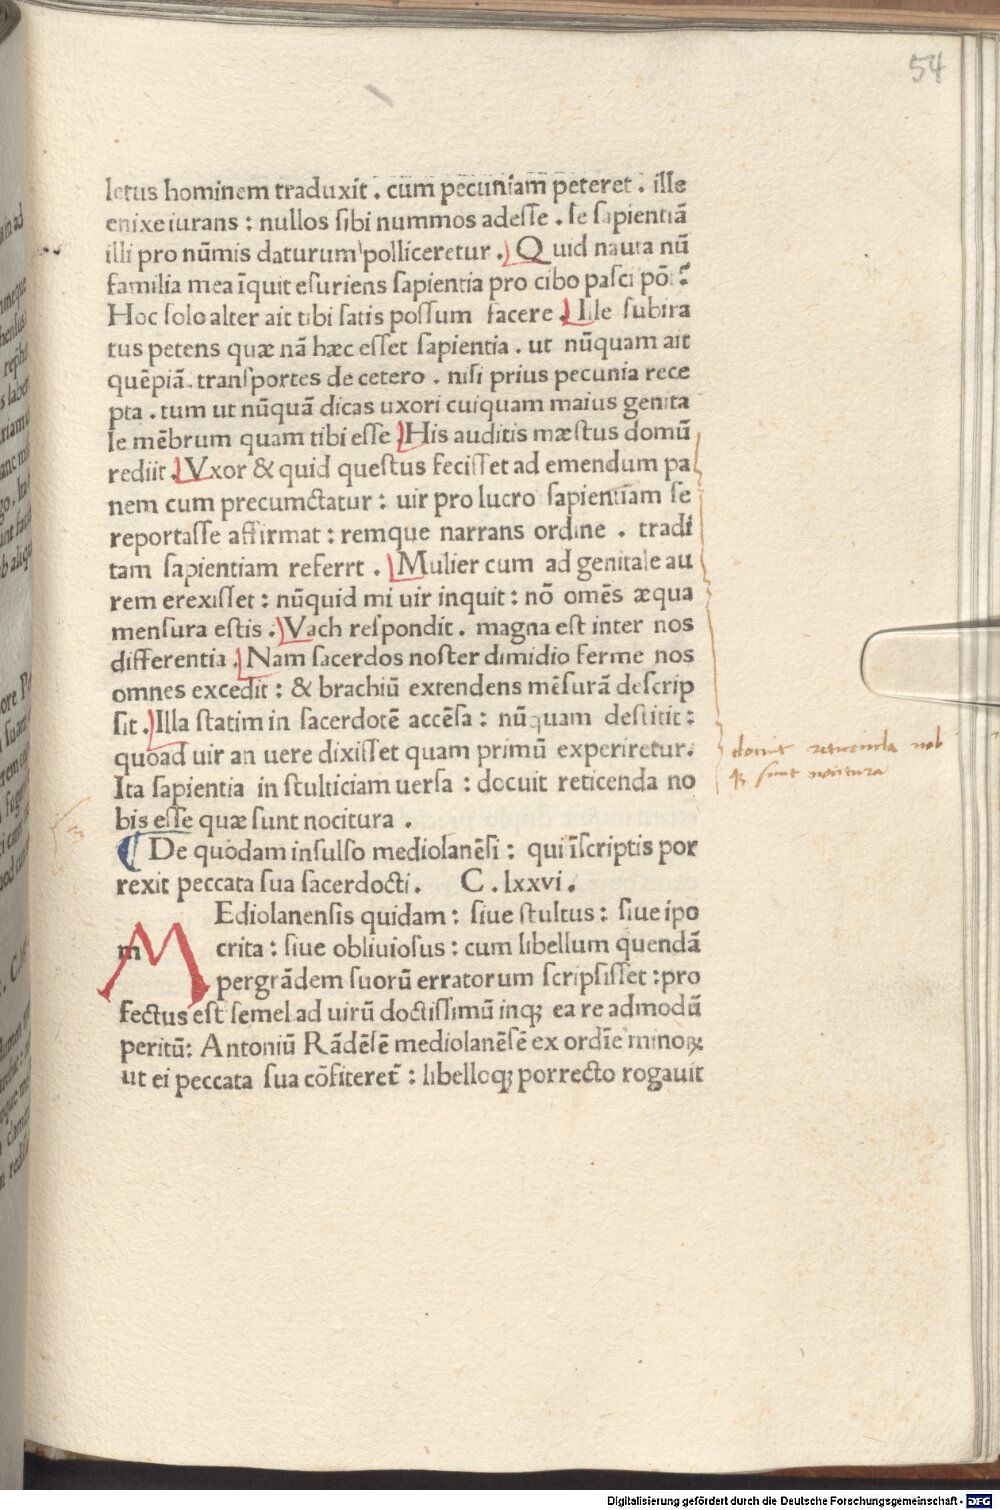 54
letus hominem traduxit . cum pecuniam peteret . ille
enixe iurans : nullos sibi nummos adesse . se sapientiā
illi pro nūmis daturum polliceretur . Quid nauta nū
familia mea īquit esuriens sapientia pro cibo pasci pōt ?
Hoc solo alter ait tibi satis possum facere . Ille subira
tus petens quæ nā hæc esset sapientia . ut nūquam ait
quēpiā . transportes de cetero . nisi prius pecunia rece
pta . tum ut nūquā dicas uxori cuiquam maius genita
le mēbrum quam tibi esse . His auditis mæstus domū
rediit . Vxor & quid questus fecisset ad emendum pa
nem cum precumctatur : uir pro lucro sapientiam se
reportasse affirmat : remque narrans ordine . tradi
tam sapientiam referrt . Mulier cum ad genitale au
rem erexisset : nūquid mi uir inquit : nō omēs æqua
mensura estis . Vach respondit . magna est inter nos
differentia . Nam sacerdos noster dimidio ferme nos
omnes excedit : & brachiū extendens mēsurā descrip
sit . Illa statim in sacerdotē accēsa : nūquam destitit :
quoad uir an uere dixisset quam primū experiretur .
Ita sapientia in stulticiam uersa : docuit reticenda no
bis esse quæ sunt nocitura .
docuit reticenda nob
sunt nocitura
¶ De quodam insulso mediolanēsi : qui īscriptis por
rexit peccata sua sacerdocti . C . lxxvi .
m M Ediolanensis quidam : siue stultus : siue ipo
crita : siue obliuiosus : cum libellum quendā
pergrādem suorū erratorum scripsisset : pro
fectus est semel ad uirū doctissimū inqꝫ ea re admodū
peritū : Antoniū Rādēsē mediolanēsē ex ordīe minoꝝ
ut ei peccata sua cōfiteret̄ : libelloqꝫ porrecto rogauit
Digitalisierung gefördert durch die Deutsche Forschungsgemeinschaft - DFG